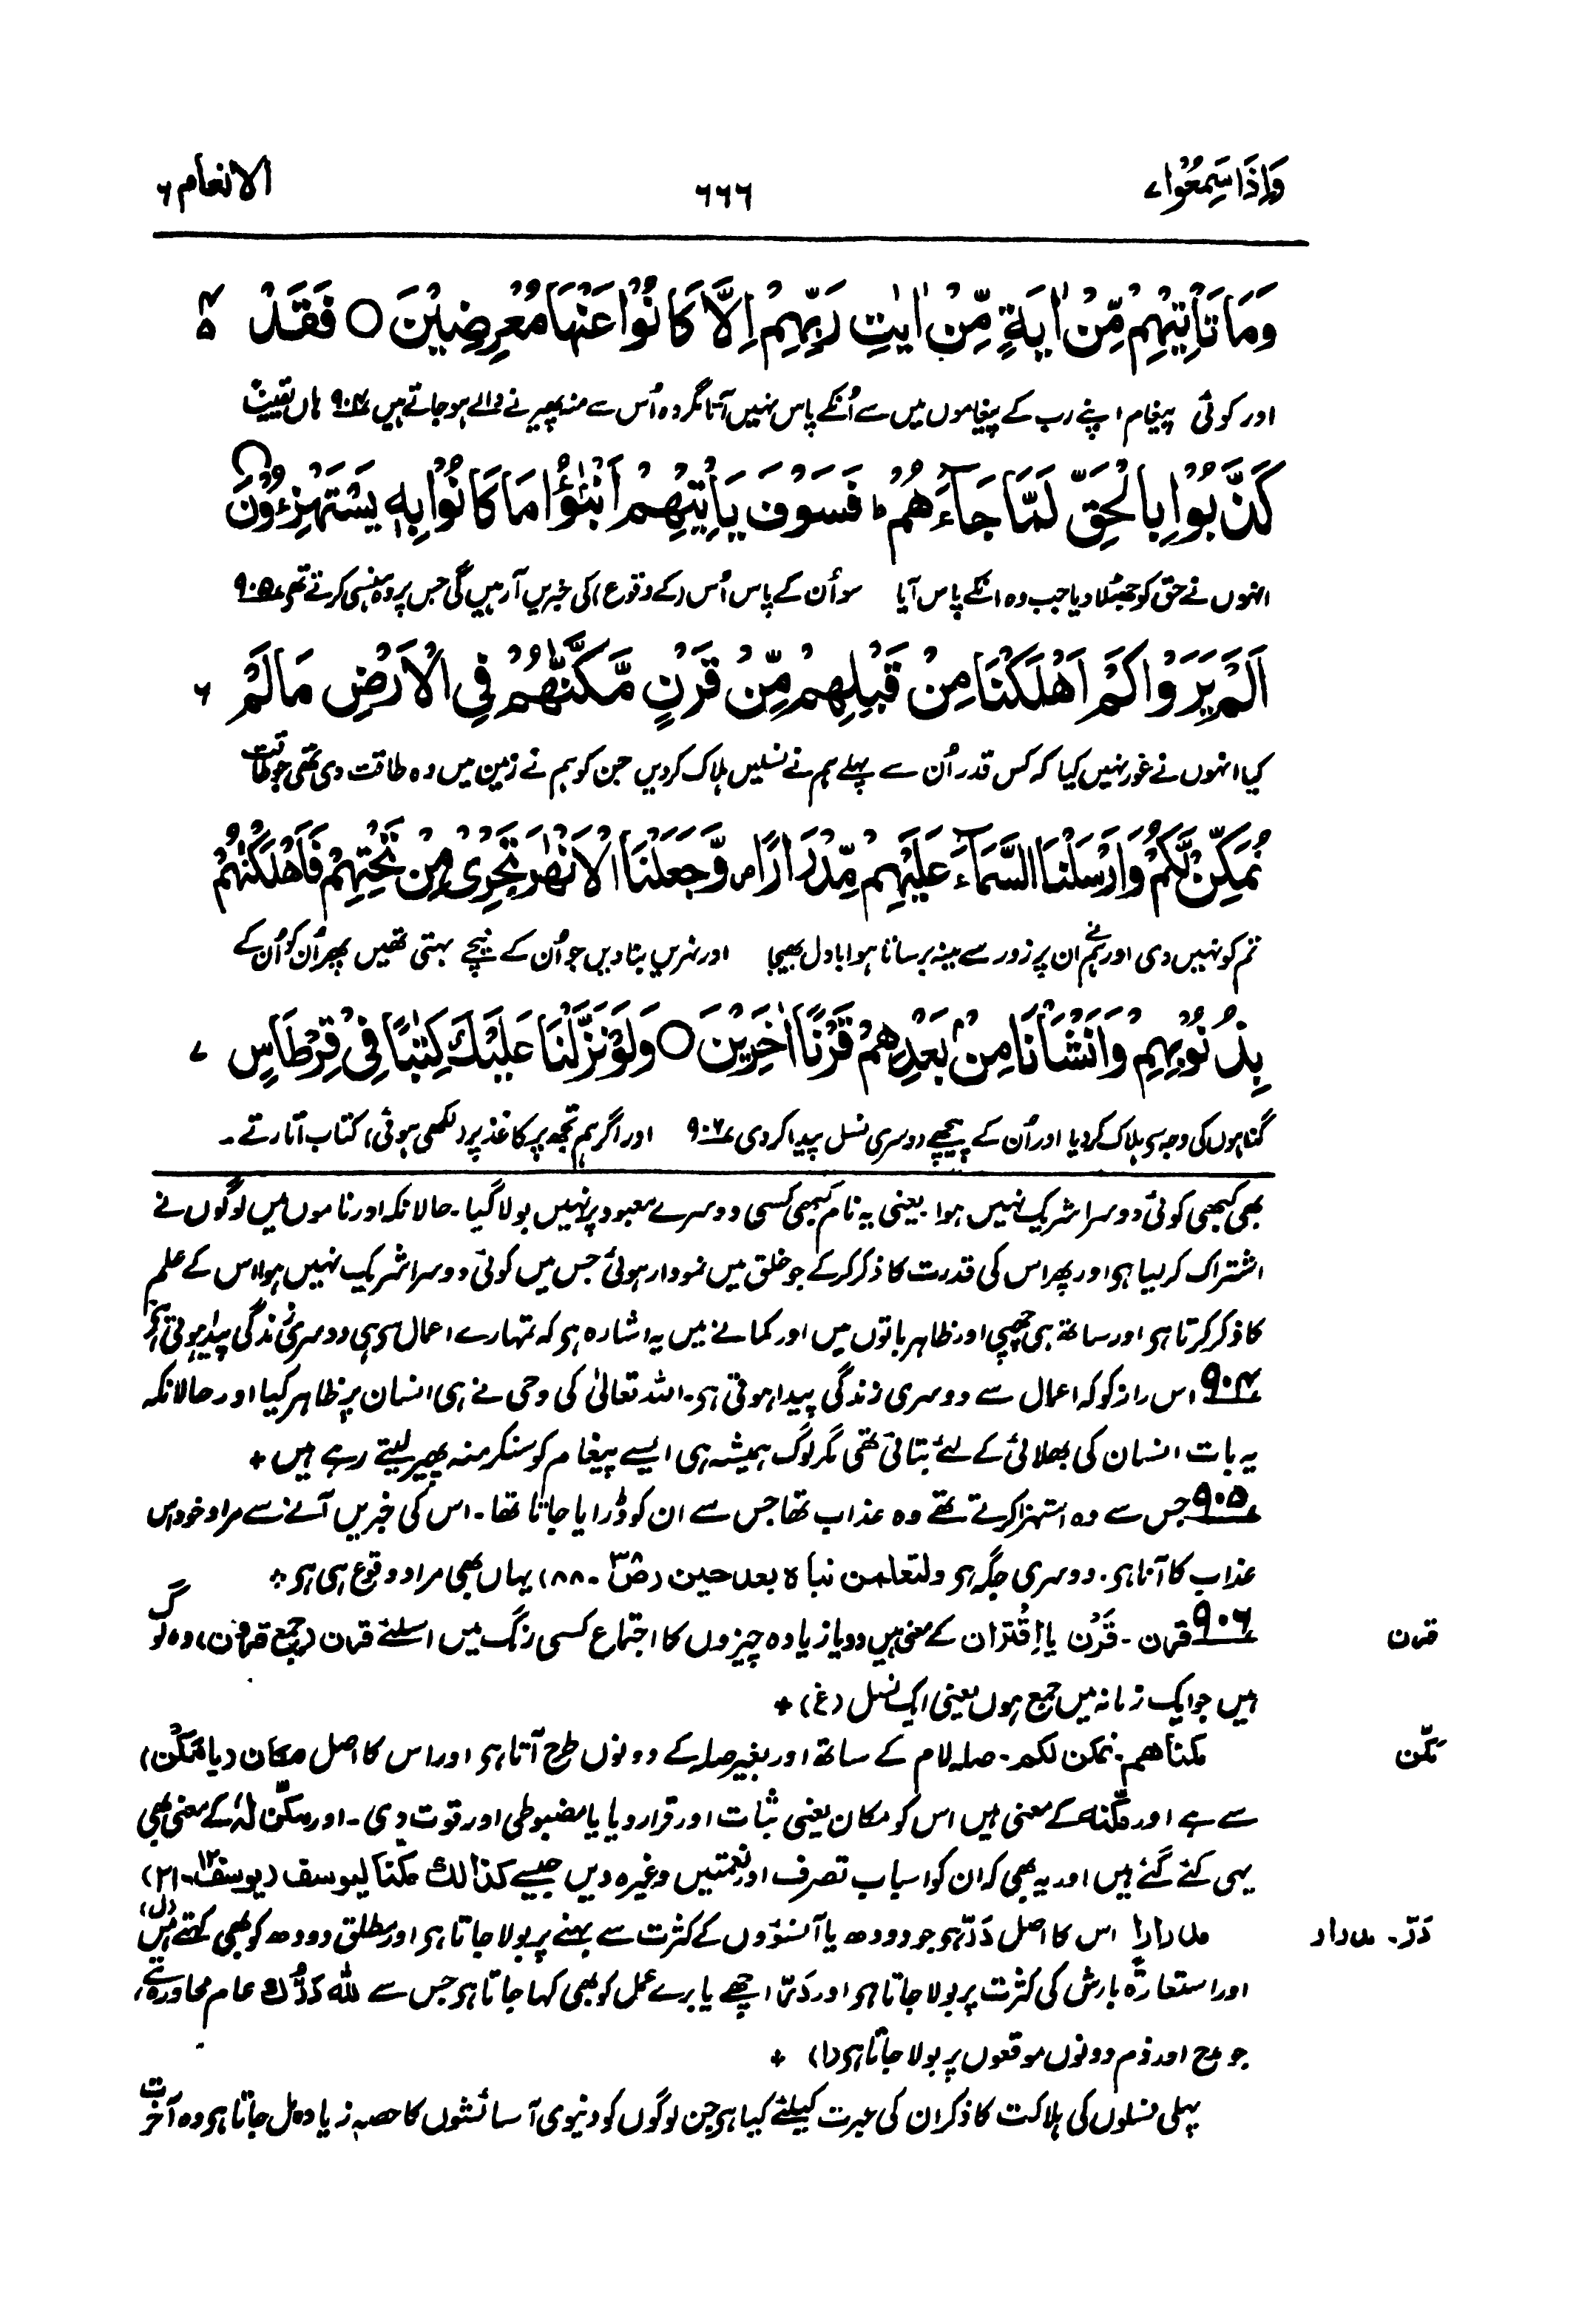 وَإِذَا سَمِعُوا ۷ ۶۶۶ الانعام ۶
وَمَا تَأْتِيْهِمْ مِّنْ اٰيَةٍ مِّنْ اٰيٰتِ رَبِّهِمْ اِلَّا كَانُوْا عَنْهَا مُعْرِضِيْنَ ○ فَقَدْ ۴ ۵
اور کوئی پیغام اپنے رب کے پیغاموں میں سے اُنکے پاس نہیں آتا مگر وہ اُس سے منہ پھیرنے والے ہو جاتے ہیں ۹۰۴ ہاں یقیناً
كَذَّبُوْا بِالْحَقِّ لَمَّا جَآءَهُمْ ؕ فَسَوْفَ يَاْتِيْهِمْ اَنْۢبٰٓؤُا مَا كَانُوْا بِهٖ يَسْتَهْزِءُوْنَ ○
انہوں نے حق کو جھٹلا دیا جب وہ انکے پاس آیا سو اُن کے پاس اُس (کے وقوع) کی خبریں آ رہیں گی جس پر وہ ہنسی کرتے تھے ۹۰۵
اَلَمْ يَرَوْا كَمْ اَهْلَكْنَا مِنْ قَبْلِهِمْ مِّنْ قَرْنٍ مَّكَّنّٰهُمْ فِي الْاَرْضِ مَا لَمْ ۶
کیا انہوں نے غور نہیں کیا کہ کس قدر اُن سے پہلے ہم نے نسلیں ہلاک کر دیں جن کو ہم نے زمین میں وہ طاقت دی تھی جو طاقت
نُمَكِّنْ لَّكُمْ وَاَرْسَلْنَا السَّمَآءَ عَلَيْهِمْ مِّدْرَارًا ۪ وَّجَعَلْنَا الْاَنْهٰرَ تَجْرِيْ مِنْ تَحْتِهِمْ فَاَهْلَكْنٰهُمْ
تم کو نہیں دی اور ہم نے ان پر زور سے مینہ برساتا ہوا بادل بھیجا اور نہریں بنا دیں جو اُن کے نیچے بہتی تھیں پھر اُن کو اُن کے
بِذُنُوْبِهِمْ وَاَنْشَاْنَا مِنْۢ بَعْدِهِمْ قَرْنًا اٰخَرِيْنَ ○ وَلَوْ نَزَّلْنَا عَلَيْكَ كِتٰبًا فِيْ قِرْطَاسٍ ۷
گناہوں کی وجہ سے ہلاک کر دیا اور اُن کے پیچھے دوسری نسل پیدا کر دی ۹۰۶ اور اگر ہم تجھ پر کاغذ پر (لکھی ہوئی) کتاب اتارتے -
بھی کبھی کوئی دوسرا شریک نہیں ہوا - یعنی یہ نام کبھی کسی دوسرے معبود پر نہیں بولا گیا - حالانکہ اور ناموں میں لوگوں نے
اشتراک کر لیا ہے اور پھر اس کی قدرت کا ذکر کر کے جو خلق میں نمودار ہوئی جس میں کوئی دوسرا شریک نہیں ہوا اس کے علم
کا ذکر کرتا ہے اور ساتھ ہی چھپی اور ظاہر باتوں میں اور کمانے میں یہ اشارہ ہے کہ تمہارے اعمال سے ہی دوسری زندگی پیدا ہوتی ہے
۹۰۴ اس راز کو کہ اعمال سے دوسری زندگی پیدا ہوتی ہے - اللہ تعالیٰ کی وحی نے ہی انسان پر ظاہر کیا اور حالانکہ
یہ بات انسان کی بھلائی کے لئے بتائی تھی مگر لوگ ہمیشہ ہی ایسے پیغام کو سنکر منہ پھیر لیتے رہے ہیں +
۹۰۵ جس سے وہ استہزا کرتے تھے وہ عذاب تھا جس سے ان کو ڈرایا جاتا تھا - اس کی خبریں آنے سے مراد خود اس
عذاب کا آنا ہے - دوسری جگہ ہے ولتعلمن نباہ بعد حین (صٓ ۳۸ - ۸۸) یہاں بھی مراد وقوع ہی ہے +
قرن
۹۰۶ قرن - قَرْن یا اِقْتِرَان کے معنی ہیں دو یا زیادہ چیزوں کا اجتماع کسی رنگ میں اسلئے قرن (جمع قرون) وہ لوگ
ہیں جو ایک زمانہ میں جمع ہوں یعنی ایک نسل (غ) +
مَکّن
مکناهم - نمکن لکم - صلہ لام کے ساتھ اور بغیر صلہ کے دونوں طرح آتا ہے اور اس کا اصل مکان (یا مَکُن)
سے ہے اور مکّنہ کے معنی ہیں اس کو مکان یعنی ثبات اور قرار دیا یا مضبوطی اور قوت دی - اور مکّن لہٗ کے معنی بھی
یہی کئے گئے ہیں اور یہ بھی کہ ان کو اسباب تصرف اور نعمتیں وغیرہ دیں جیسے کذٰلک مکّنا لیوسف (یوسف ۱۲ - ۲۱) (ل)
دَرّ - مدرار
مدرارا اس کا اصل دَرّ ہے جو دودھ یا آنسوؤں کے کثرت سے بہنے پر بولا جاتا ہے اور مطلق دودھ کو بھی کہتے ہیں
اور استعارۃً بارش کی کثرت پر بولا جاتا ہے اور دَرّ اچھے یا برے عمل کو بھی کہا جاتا ہے جس سے للّٰہ دَرُّک عام محاورہ ہے،
جو مدح اور ذم دونوں موقعوں پر بولا جاتا ہے (ل) +
پہلی نسلوں کی ہلاکت کا ذکر ان کی عبرت کیلئے کیا ہے جن لوگوں کو دنیوی آسائشوں کا حصہ زیادہ مل جاتا ہے وہ آخرت